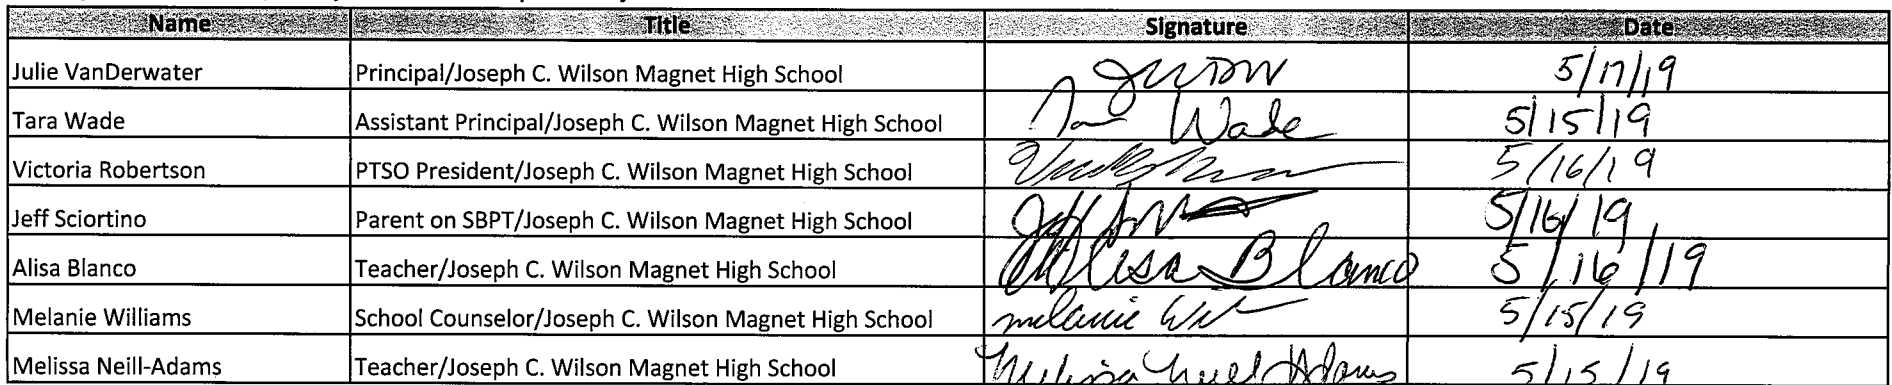 Name Title Signature Date
Julie VanDerwater Principal/Joseph C. Wilson Magnet High School 5/17/19
Tara Wade Assistant Principal/Joseph C. Wilson Magnet High School Tara Wade 5/15/19
Victoria Robertson PTSO President/Joseph C. Wilson Magnet High School 5/16/19
Jeff Sciortino Parent on SBPT/Joseph C. Wilson Magnet High School 5/16/19
Alisa Blanco Teacher/Joseph C. Wilson Magnet High School Alisa Blanco 5/16/19
Melanie Williams School Counselor/Joseph C. Wilson Magnet High School melanie 5/15/19
Melissa Neill-Adams Teacher/Joseph C. Wilson Magnet High School Melissa Neill Adams 5/15/19